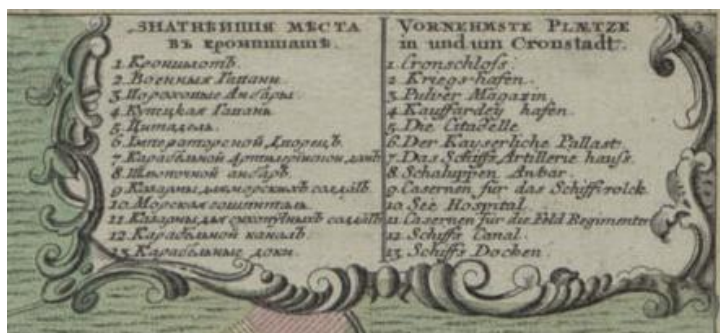 ЗНАТНѢЙШІЯ МѢСТА
въ кронштатѣ.
1. Кроншлотъ.
2. Военныя Гапани.
3. Пороховые Анбары.
4. Купецкая Гапань
5. Цитадель.
6. Імператорской Дворецъ.
7. Карабельной Артилерискои домъ
8. Шлюпочной анбаръ.
9. Казармы для морскихъ солдатъ.
10. Морская гошпиталь.
11. Казармы для сухопутныхъ солдатъ
12. Карабельной каналъ.
13. Карабельные доки.
VORNEHMSTE PLÆTZE
in und um Cronstadt.
1. Cronschloss.
2. Kriegs-hafen.
3. Pulver Magazin.
4. Kauffardey hafen.
5. Die Citadelle
6. Der Kayserliche Pallast.
7. Das Schiffs Artillerie hauss.
8. Schaluppen Anbar.
9. Casernen für das Schiffsvolck.
10. See Hospital.
11. Casernen für die Feld Regimenter
12. Schiffs Canal.
13. Schiffs Docken.